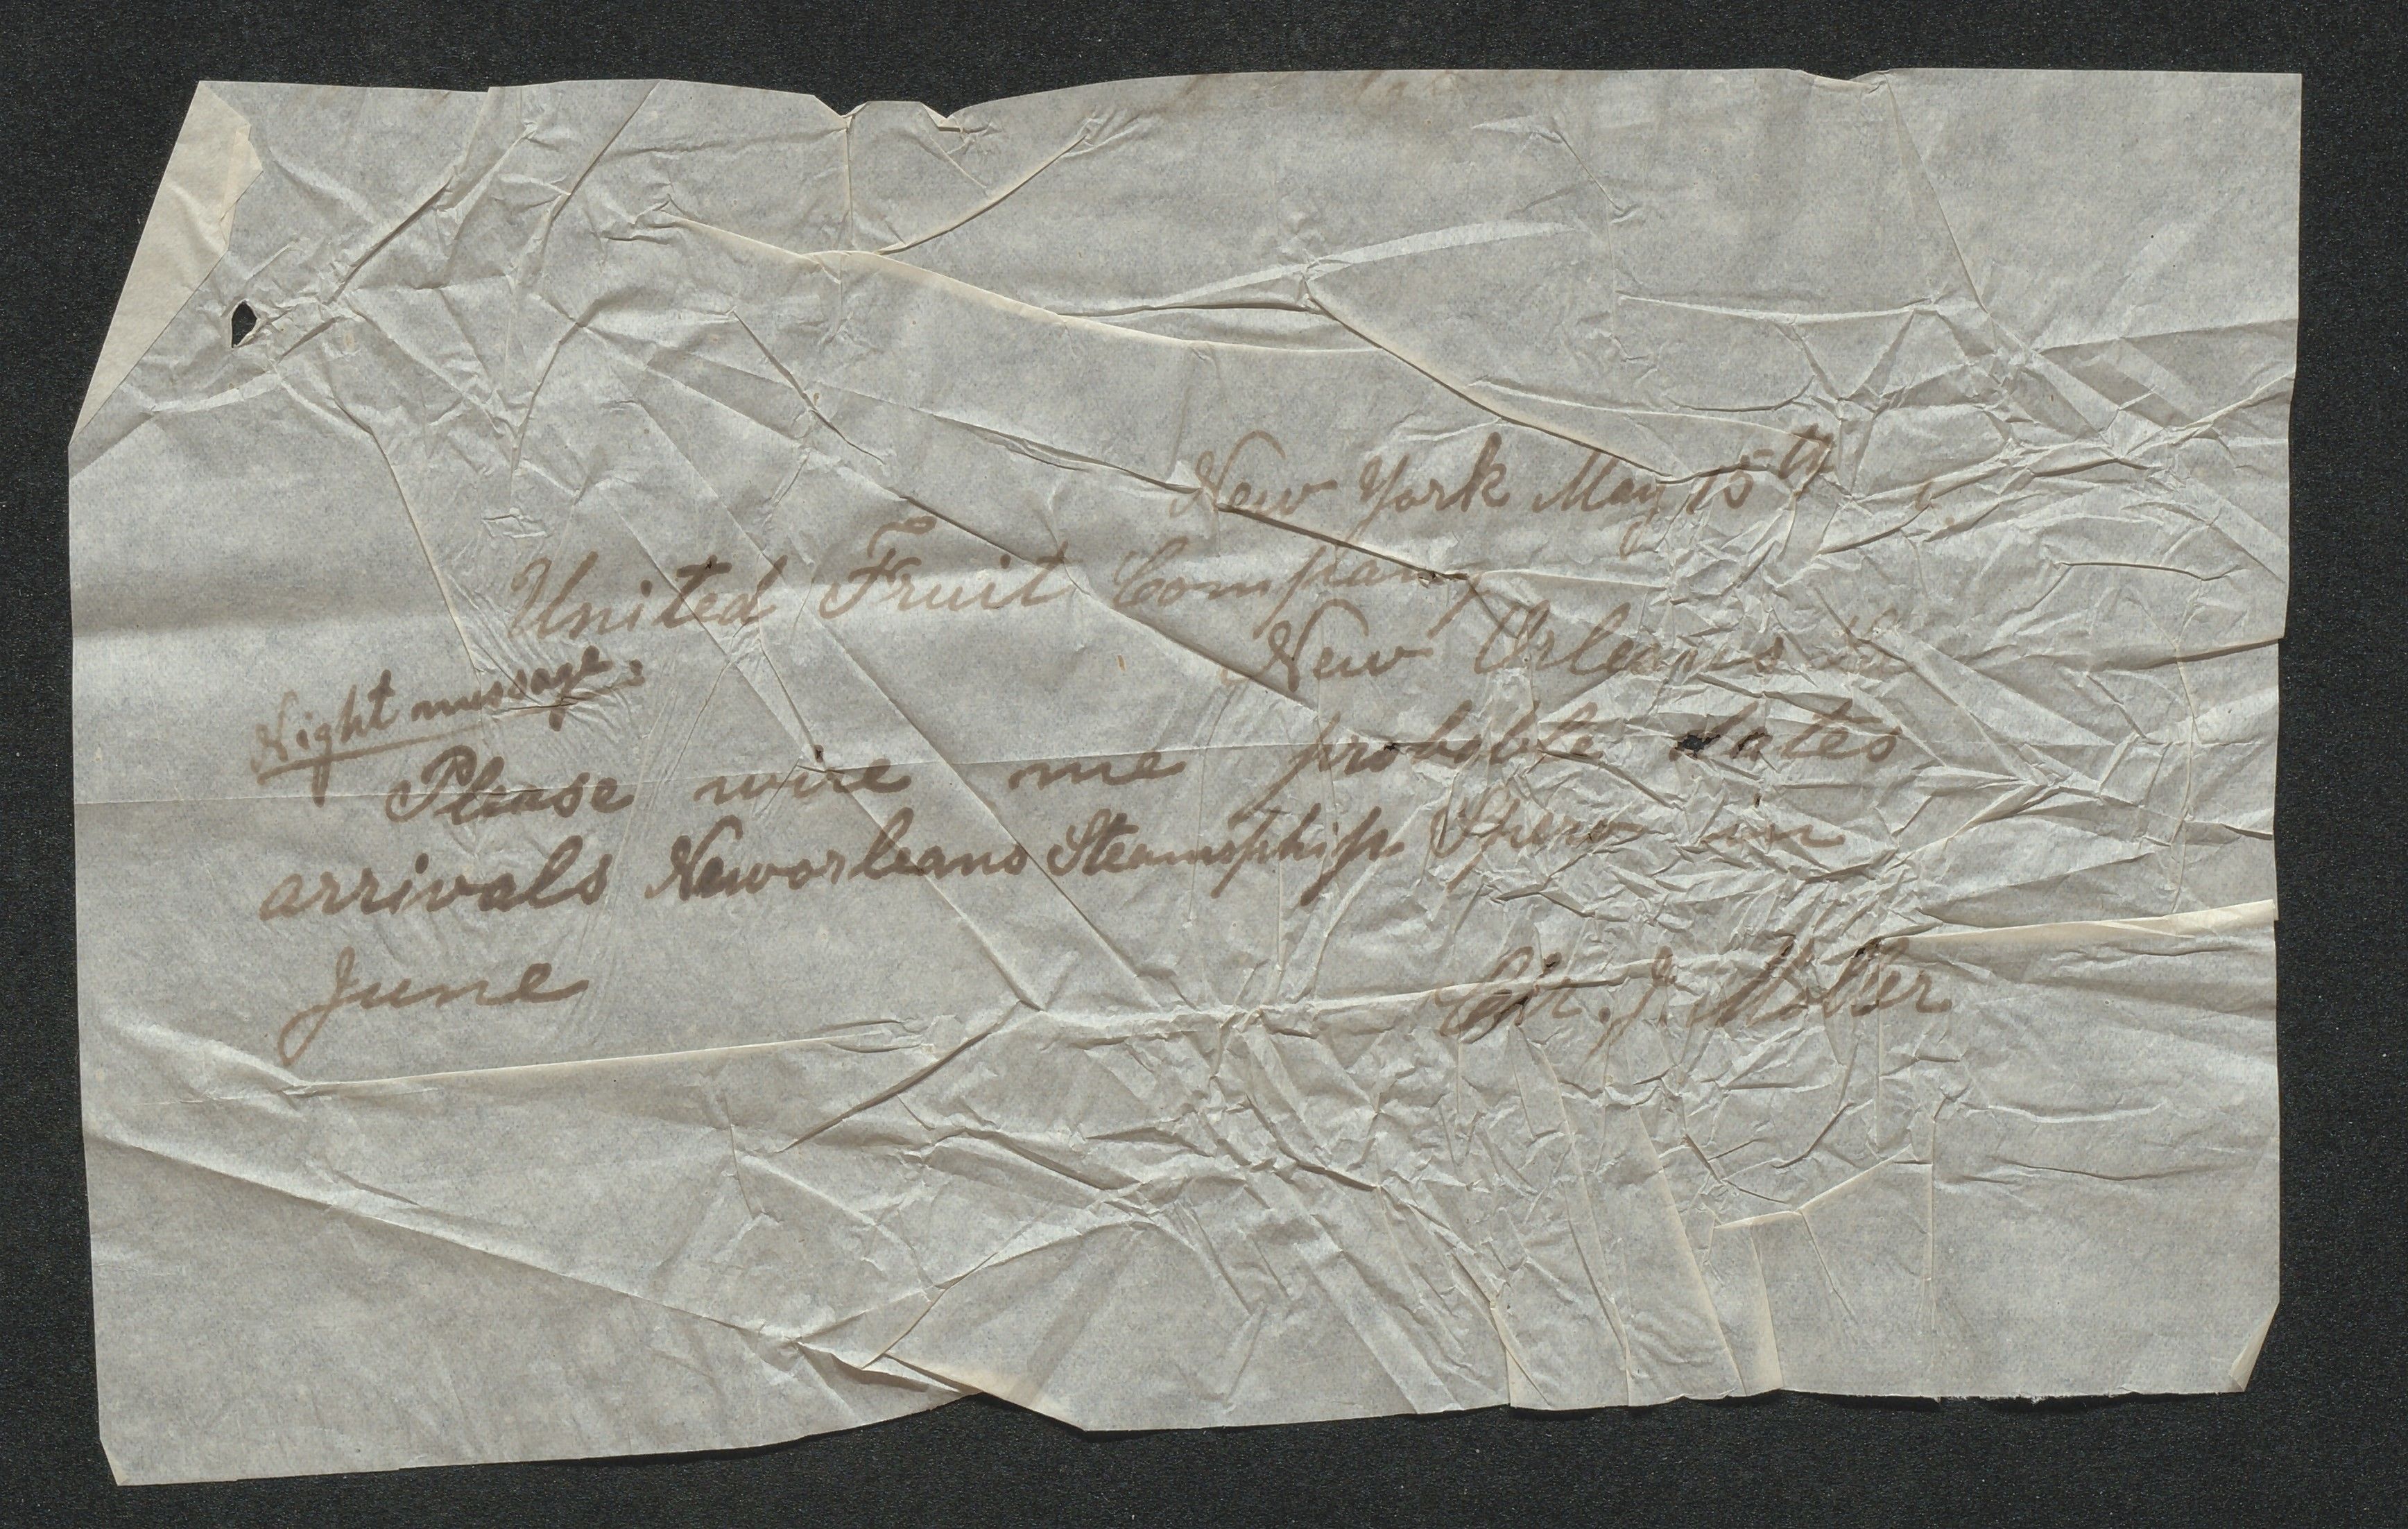 New York May 15th
United Fruit Company
New Orleans La
Night message.
Please wire me probable dates
arrivals Neworleans Steamship in
June
Chr. J. Moller